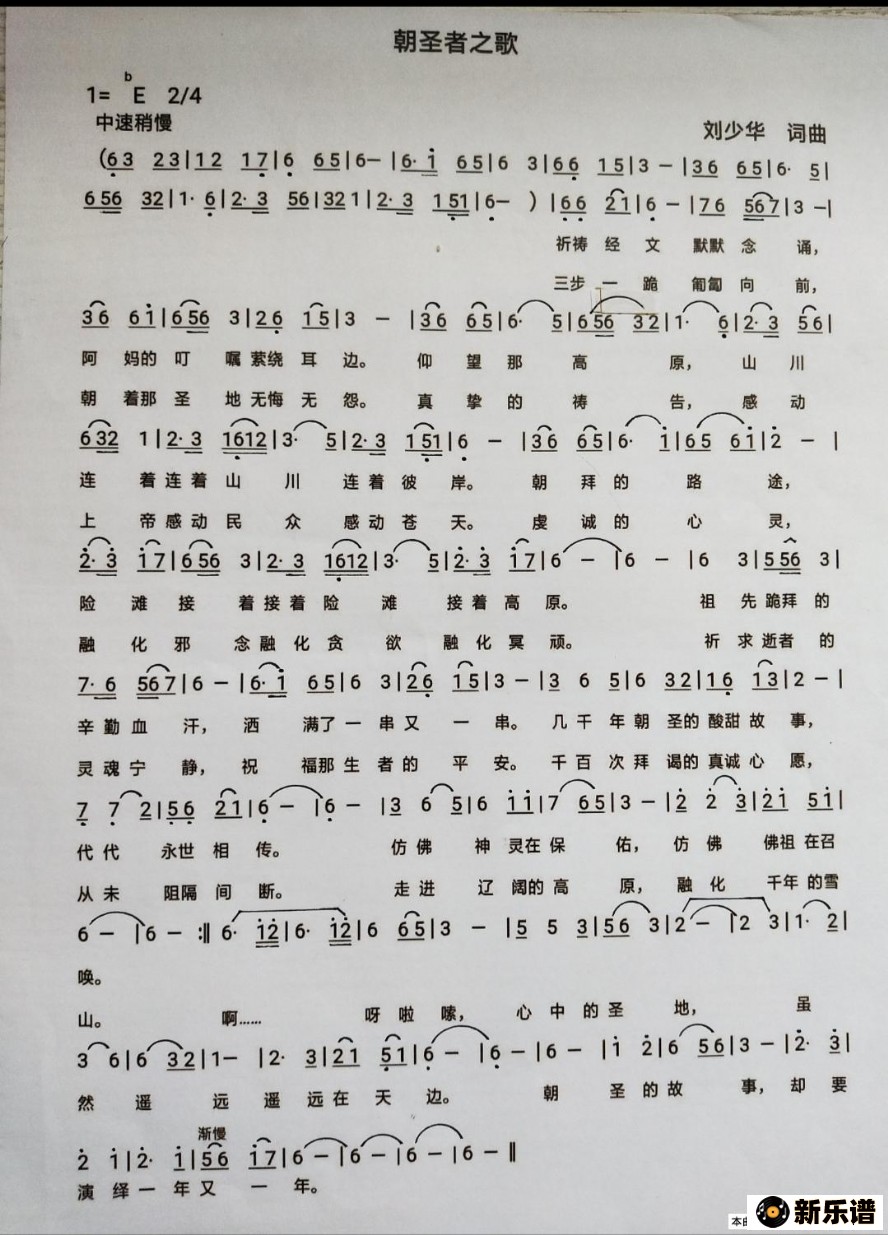 朝圣者之歌
1= bE 2/4
中速稍慢
刘少华 词曲
(63 23|12 17|6 65|6–|6· i 65|6 3|66 15|3 –|36 65|6· 5|
656 32|1· 6|2· 3 56|321|2· 3 151|6–)|66 21|6 –|76 567|3 –|
祈祷 经 文 默默 念 诵，
三步 一 跪 匍匐 向 前，
36 6i|656 3|26 15|3 – |36 65|6· 5|656 32|1· 6|2· 3 56|
阿 妈的 叮 嘱 萦绕 耳 边。 仰 望 那 高 原， 山 川
朝 着那 圣 地 无悔 无 怨。 真 挚 的 祷 告， 感 动
632 1|2· 3 1612|3· 5|2· 3 151|6 – |36 65|6· i|65 6i|2 – |
连 着连 着 山 川 连 着 彼 岸。 朝 拜 的 路 途，
上 帝感 动 民 众 感 动 苍 天。 虔 诚 的 心 灵，
2· 3 i7|656 3|2· 3 1612|3· 5|2· 3 i7|6 – |6 – |6 3|556 3|
险 滩 接 着接 着 险 滩 接 着 高 原。 祖 先 跪拜 的
融 化 邪 念 融 化 贪 欲 融 化 冥 顽。 祈 求 逝者 的
7· 6 567|6 – |6· i 65|6 3|26 15|3 – |3 6 5|6 32|16 13|2 – |
辛 勤 血 汗， 洒 满了 一 串 又 一 串。 几 千 年 朝 圣的 酸甜 故 事，
灵 魂 宁 静， 祝 福那 生 者 的 平 安。 千 百 次 拜 谒的 真诚 心 愿，
7 7 2|56 21|6 – |6 – |3 6 5|6 ii|7 65|3 – |2 2 3|2i 5i|
代 代 永世 相 传。 仿 佛 神 灵在 保 佑， 仿 佛 佛祖 在召
从 未 阻隔 间 断。 走 进 辽 阔的 高 原， 融 化 千年 的雪
6 – |6 – :‖ 6· i2|6· i2|6 65|3 – |5 5 3|56 3|2 – |2 3|1· 2|
唤。
山。 啊…… 呀 啦 嗦， 心 中 的 圣 地， 虽
3 6|6 32|1– |2· 3|21 51|6 – |6 – |6 – |i 2|6 56|3 – |2· 3|
然 遥 远 遥 远 在 天 边。 朝 圣 的 故 事， 却 要
渐慢
2 i|2· i|56 i7|6 – |6 – |6 – |6 – ‖
演 绎 一 年 又 一 年。
本曲
新乐谱